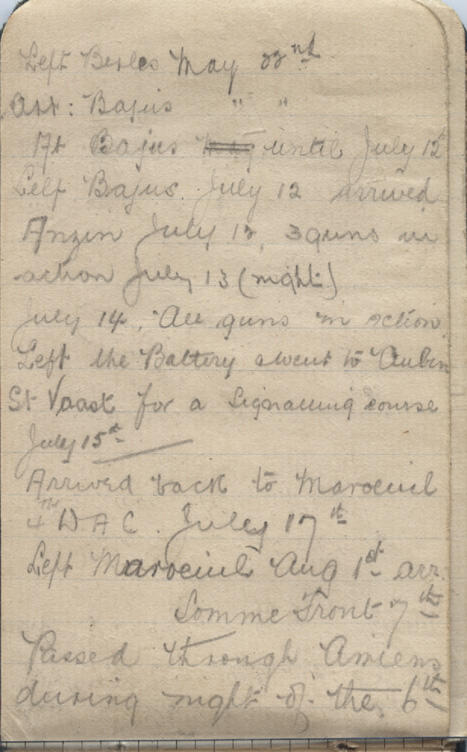 Left Berles May 22nd
Arr: Bajus " "
At Bajus until July 12
Left Bajus. July 12 arrived
Anzin July 13, 3 guns in
action July 13 (night)
July 14, All guns in action
Left the Battery & went to Aubin
St Vaast for a Signalling course
July 15th
Arrived back to Maroeuil
4th D A C. July 17th
Left Maroeuil Aug 1st arr.
Somme Front 7th
Passed through Amiens
during night of the 6th